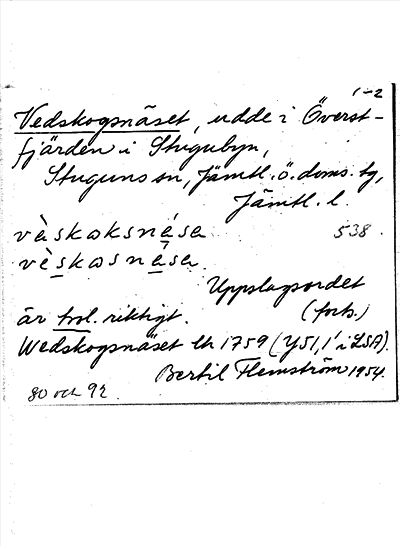 1-2
Vedskogsnäset, udde i Överst-
fjärden i Stugubyn,
Stuguns sn, Jämtl. ö. doms. tg,
Jämtl. l.
vèskoksnésa 538.
vèskosnésa.
Uppslagsordet
är trol. riktigt. (forts.)
Wedskogsnäset lh 1759 (Y51, 1' i LSA).
Bertil Flemström 1954.
80 och 92